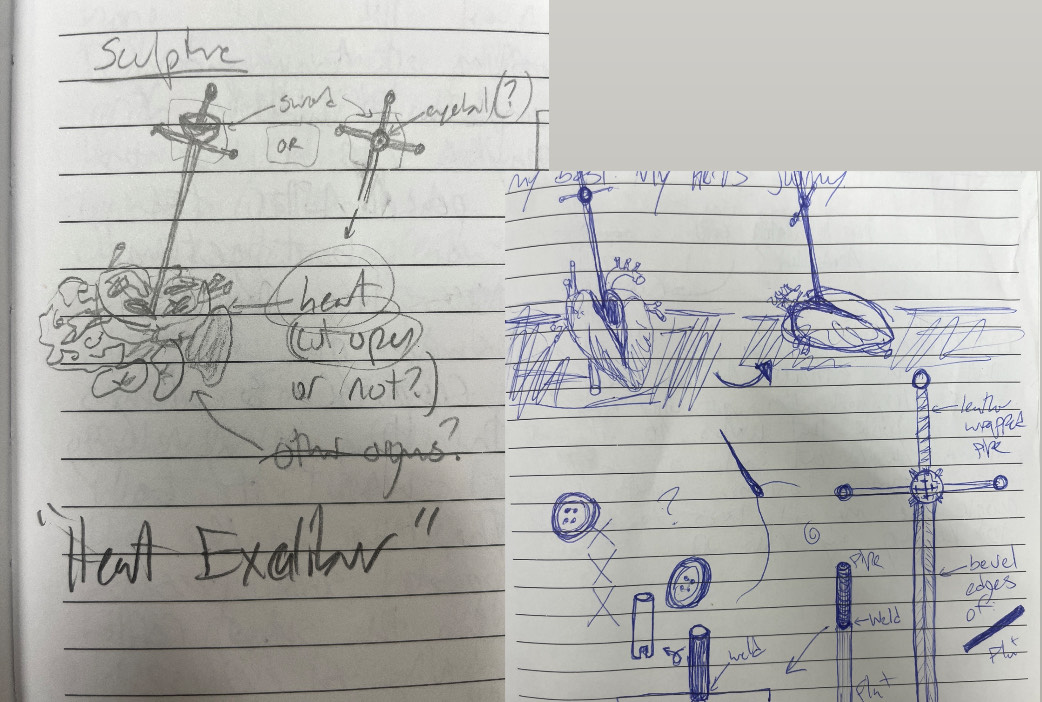 Sculptre
sword
eyeball (?)
OR
heart
(cut open
or not?)
other organs?
"Heart Excalibur"
my
My
leather
wrapped
pipe
?
bevel
edges
of
flat
Pipe
weld
weld
flat